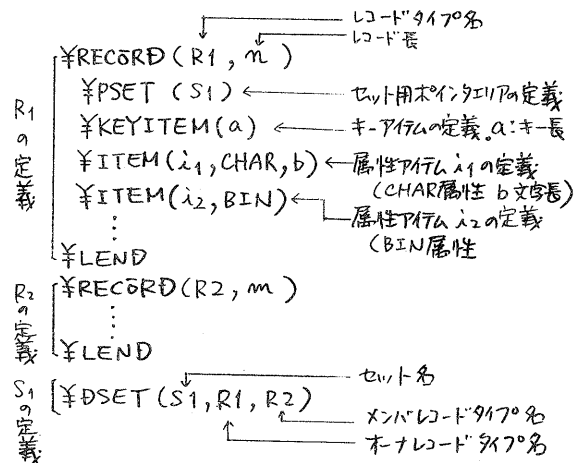 レコードタイプ名
レコード長
¥RECORD(R1, n)
¥PSET (S1) セット用ポインタエリアの定義
¥KEYITEM(a) キーアイテムの定義。a:キー長
¥ITEM(i₁,CHAR,b) 属性アイテム i₁の定義
(CHAR属性 b文字長)
¥ITEM(i₂,BIN) 属性アイテム i₂の定義
(BIN属性
⋮
¥LEND
R₁の定義
¥RECORD(R2, m)
⋮
¥LEND
R₂の定義
セット名
¥DSET(S1,R1,R2)
メンバレコードタイプ名
オーナレコードタイプ名
S₁の定義